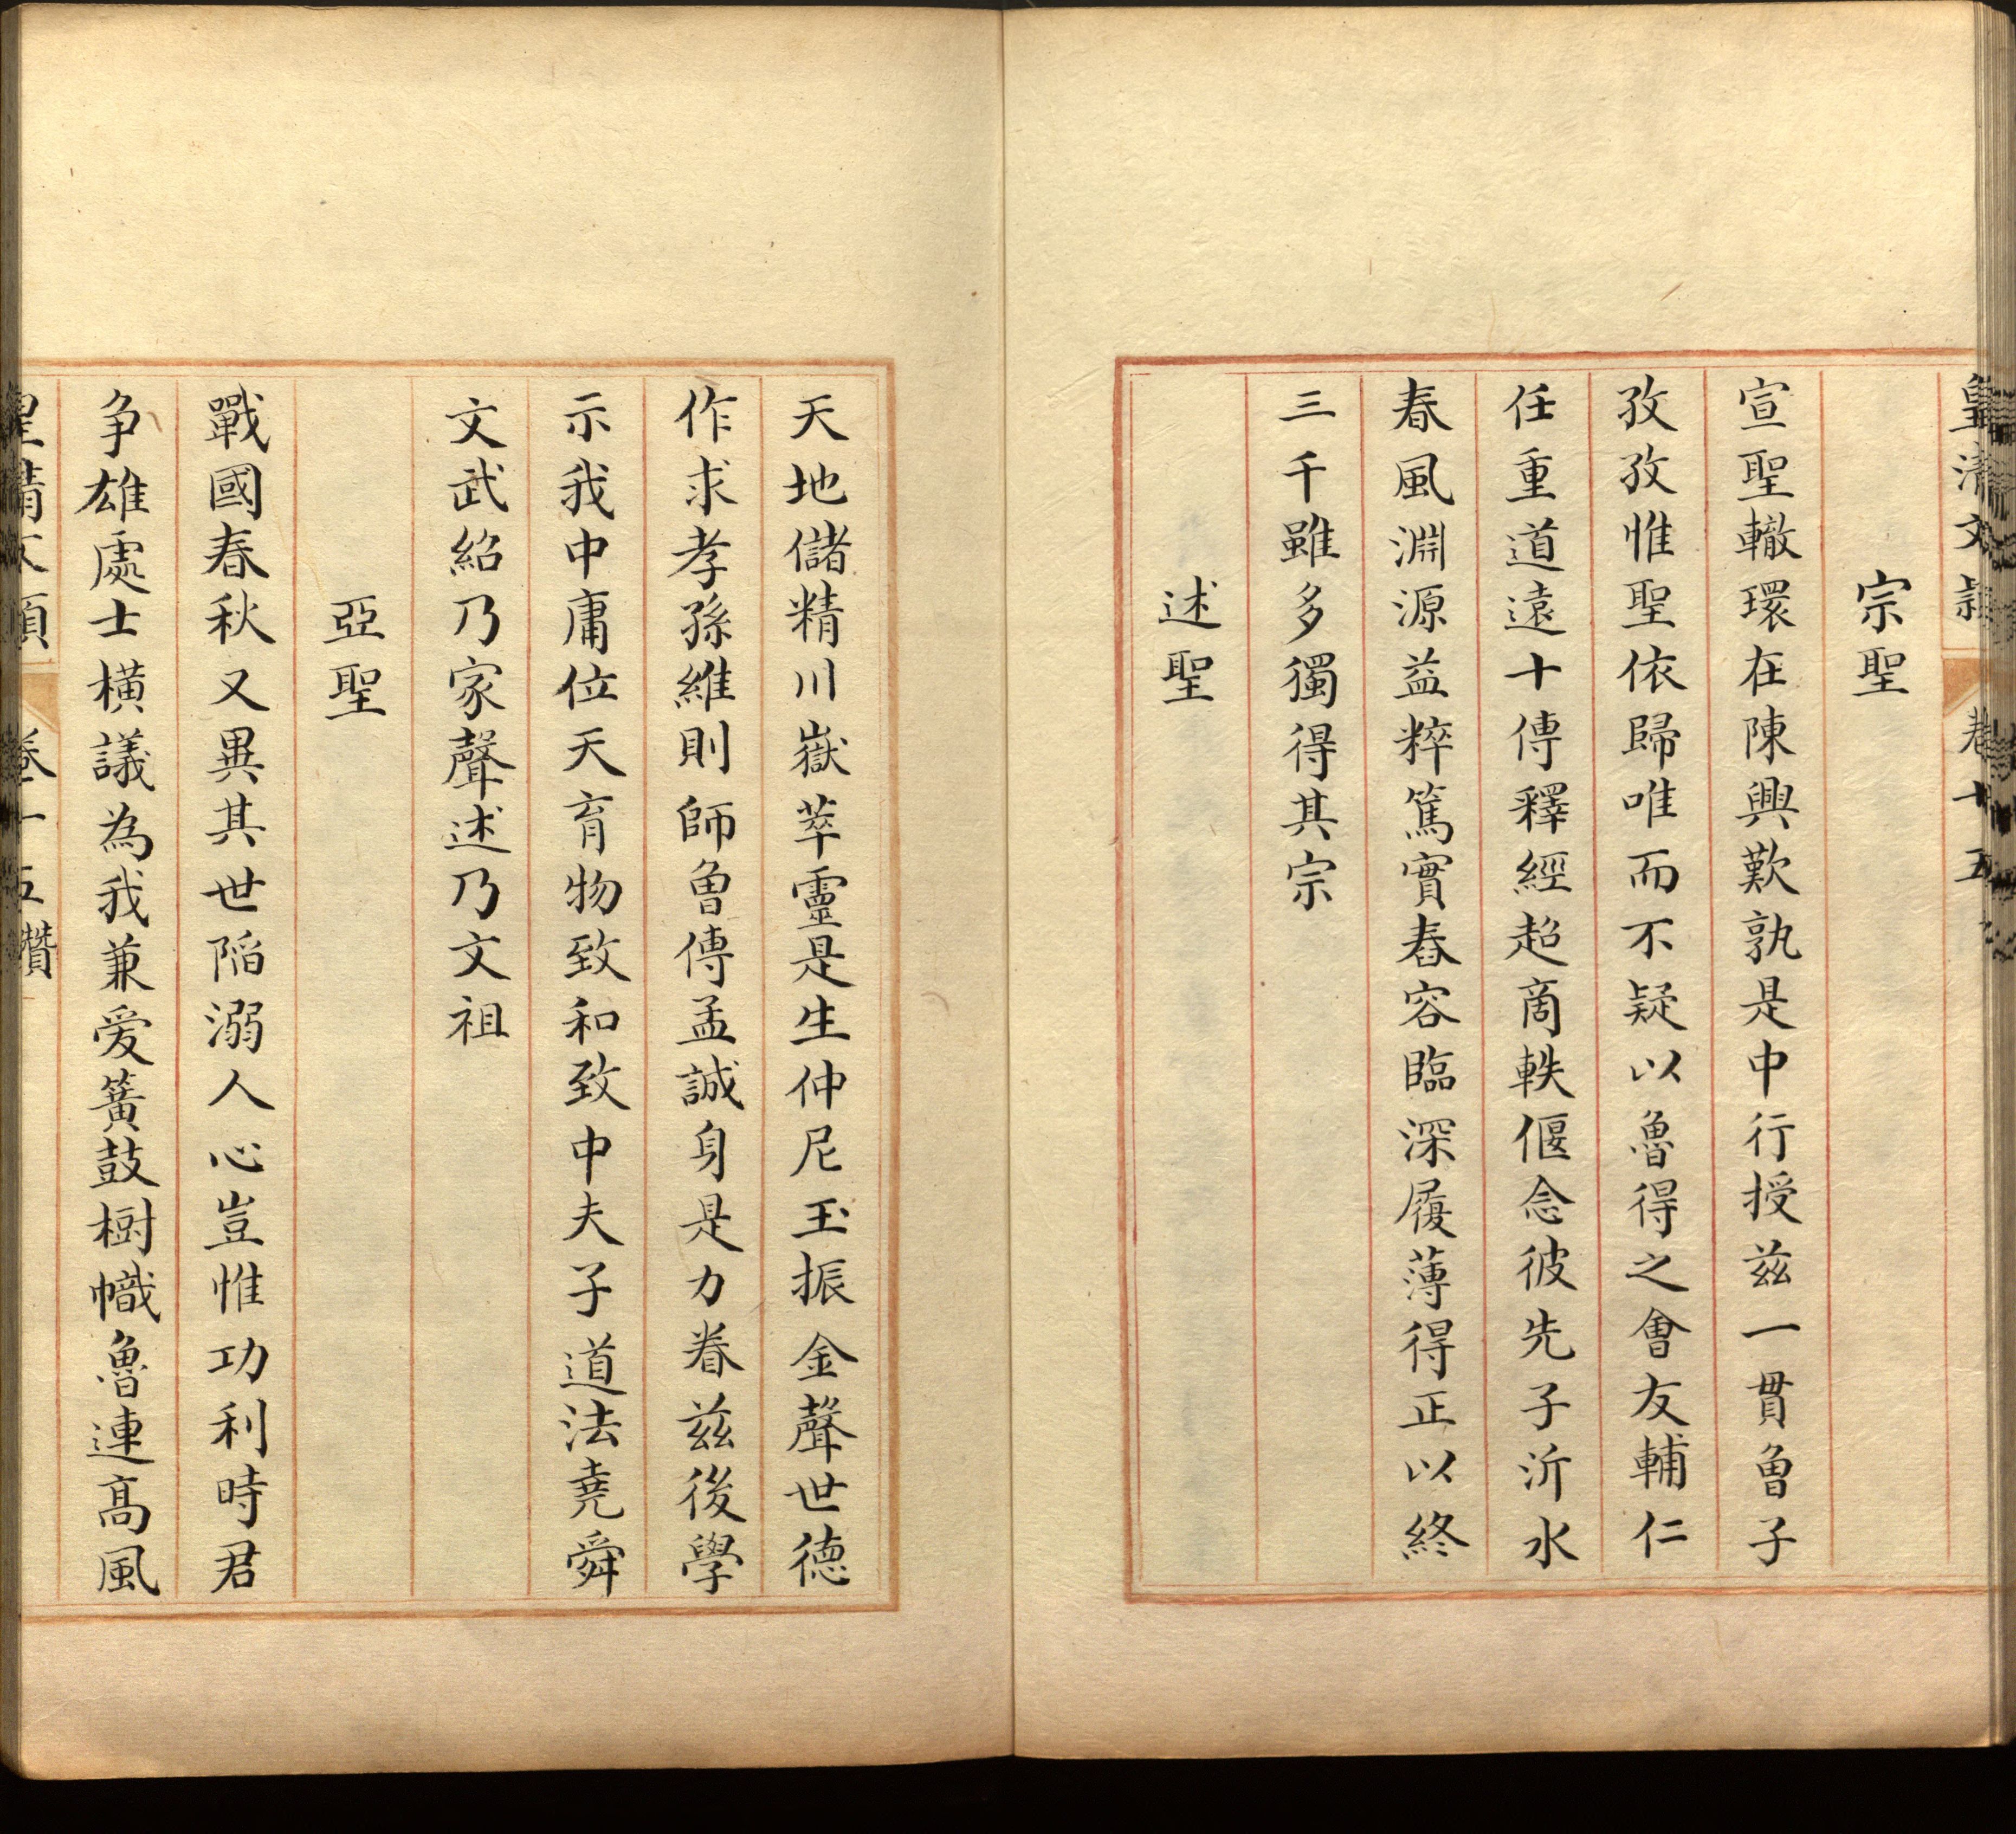 皇清文穎 卷十五
宗聖
宣聖轍環在陳興歎孰是中行授兹一貫曾子
孜孜惟聖依歸唯而不疑以魯得之會友輔仁
任重道遠十傳釋經超商軼偃念彼先子沂水
春風淵源益粹篤實舂容臨深履薄得正以終
三千雖多獨得其宗
述聖
天地儲精川嶽萃靈是生仲尼玉振金聲世德
作求孝孫維則師曾傳孟誠身是力眷兹後學
示我中庸位天育物致和致中夫子道法堯舜
文武紹乃家聲述乃文祖
亞聖
戰國春秋又異其世陷溺人心豈惟功利時君
争雄處士橫議為我兼爱簧鼓樹幟魯連高風
皇清文穎 卷十五 讚